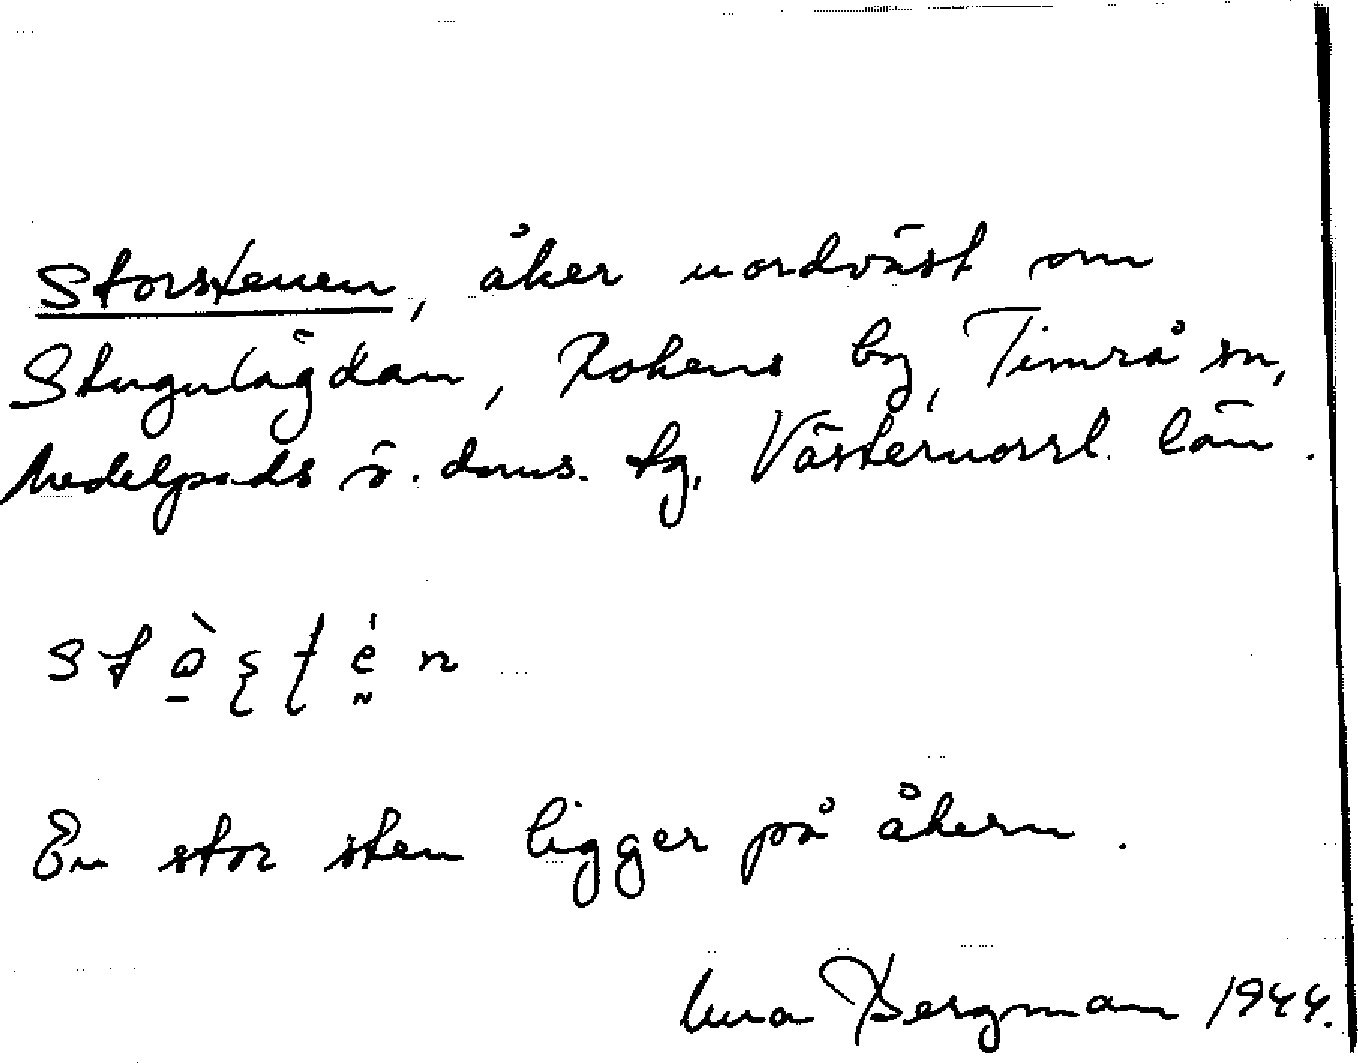 Storstenen, åker nordväst om
Stugulägdan, Rokens by, Timrå sn,
Medelpads ö. doms. tg, Västernorrl. län.
En stor sten ligger på åkern.
Bergman 1944.